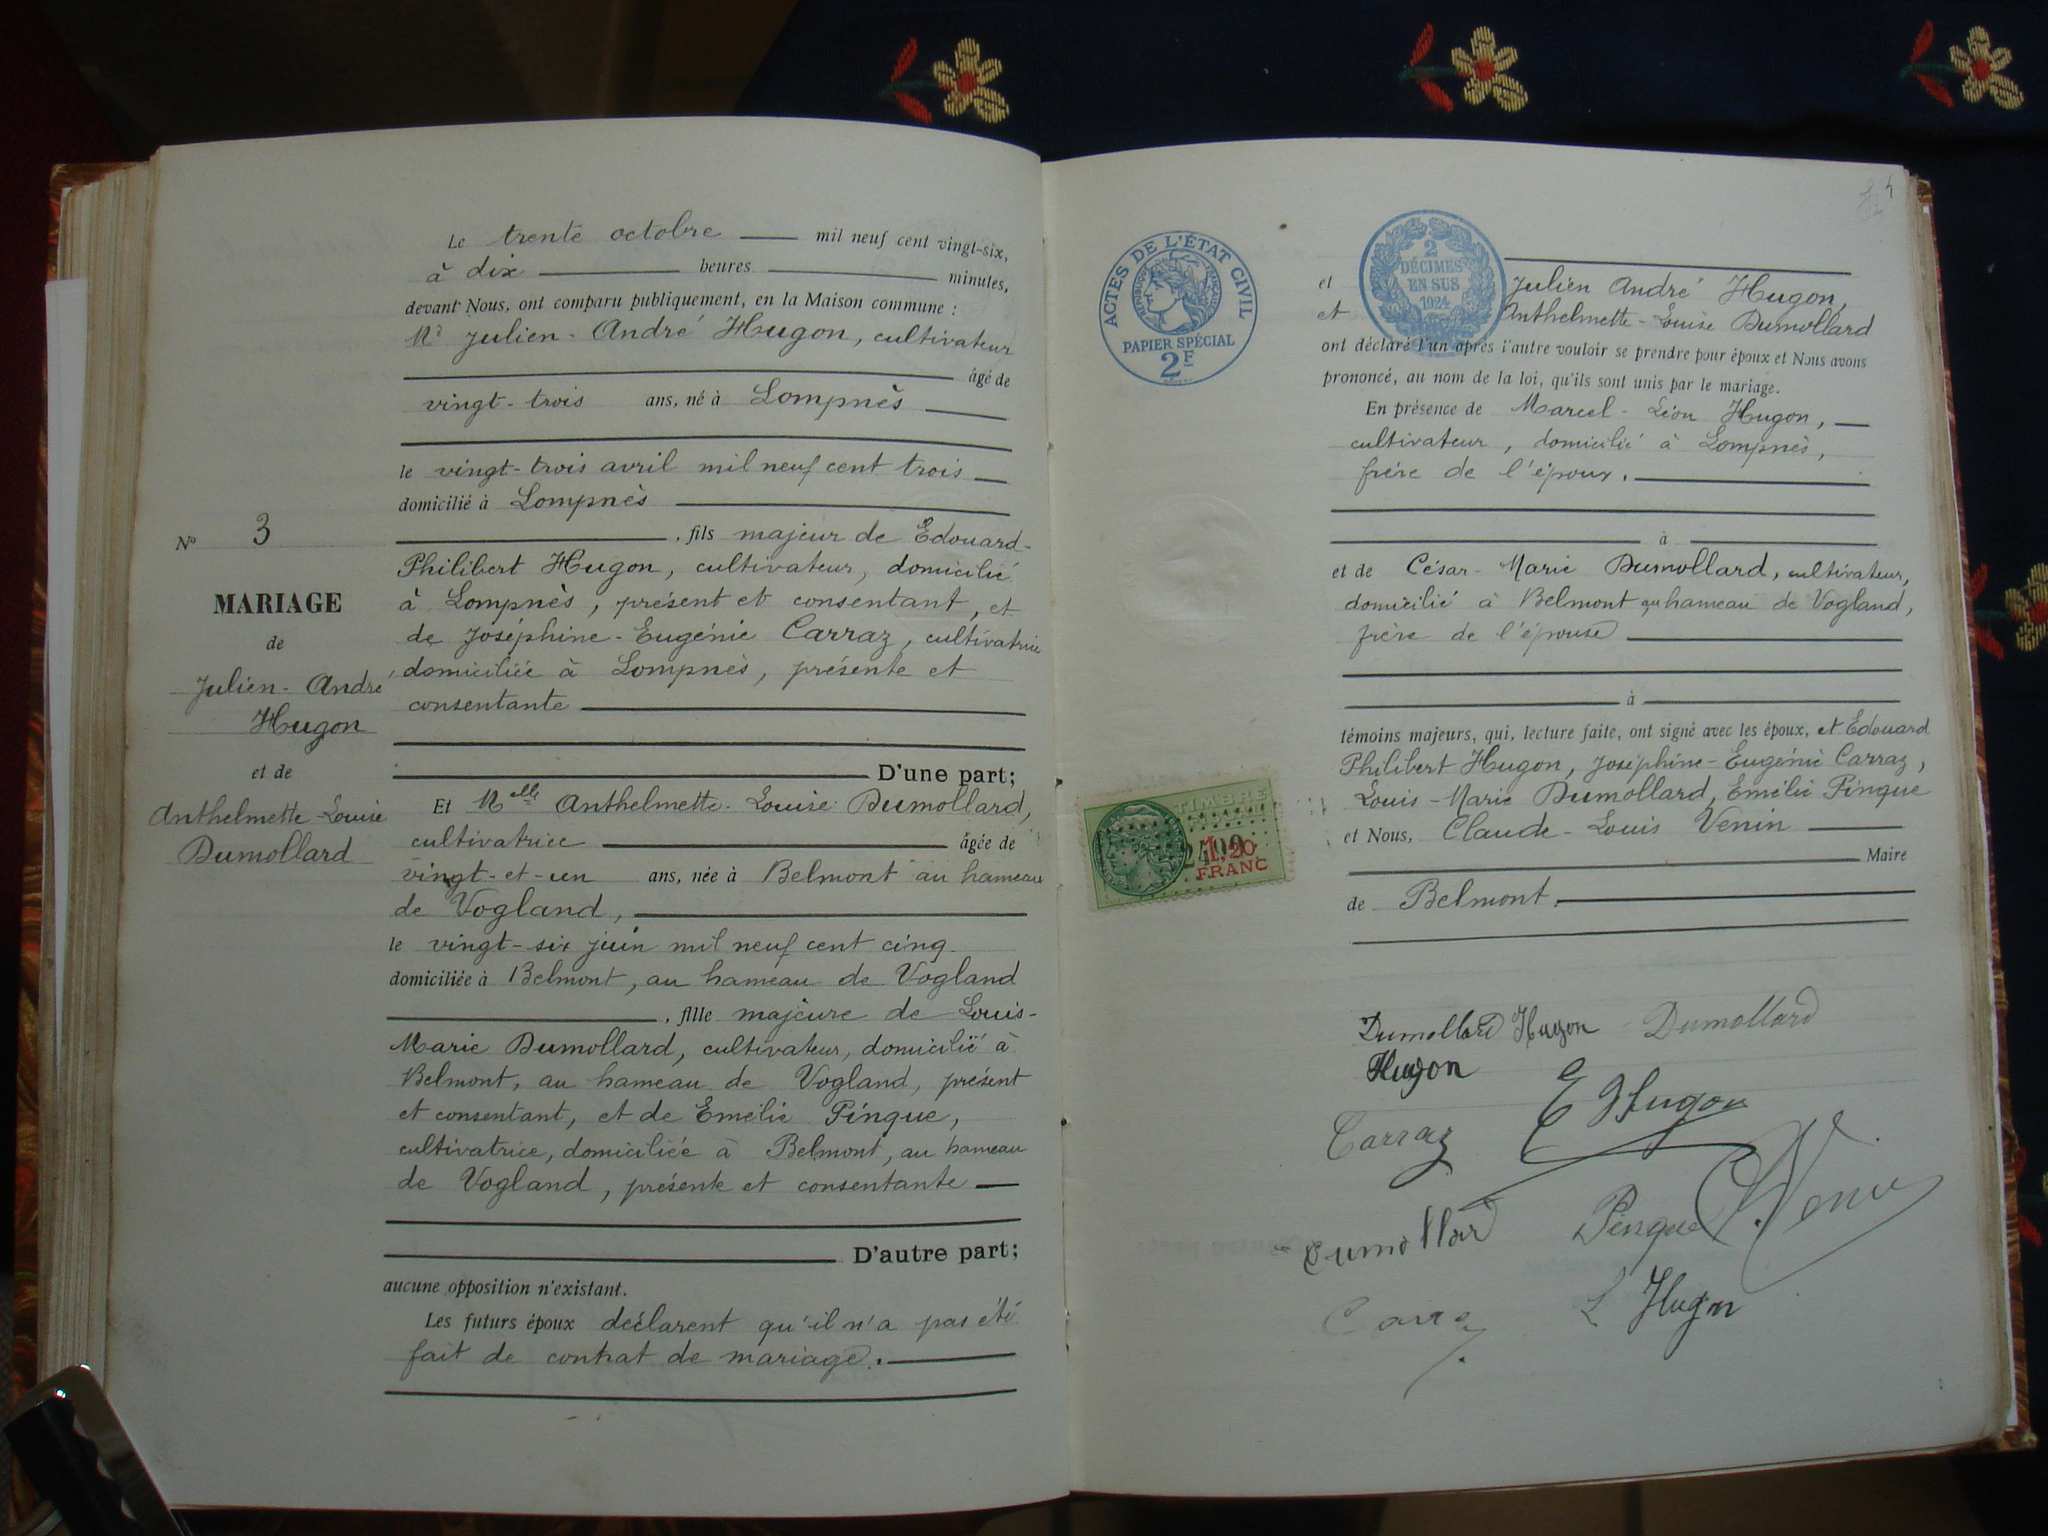 Le trente octobre mil neuf cent vingt-six,
à dix heures minutes,
devant Nous, ont comparu publiquement, en la Maison commune :
Mr Julien-André Hugon, cultivateur
âgé de
vingt-trois ans, né à Lompnès
le vingt-trois avril mil neuf cent trois
domicilié à Lompnès
, fils majeur de Edouard-
Philibert Hugon, cultivateur, domicilié
à Lompnès, présent et consentant, et
de Joséphine-Eugénie Carraz, cultivatrice
domiciliée à Lompnès, présente et
consentante
D'une part;
Et Melle Anthelmette-Louise Dumollard,
cultivatrice âgée de
vingt-et-un ans, née à Belmont au hameau
de Vogland,
le vingt-six juin mil neuf cent cinq
domiciliée à Belmont, au hameau de Vogland
, fille majeure de Louis-
Marie Dumollard, cultivateur, domicilié à
Belmont, au hameau de Vogland, présent
et consentant, et de Emélie Pingue,
cultivatrice, domiciliée à Belmont, au hameau
de Vogland, présente et consentante
D'autre part;
aucune opposition n'existant.
Les futurs époux déclarent qu'il n'a pas été
fait de contrat de mariage.
No 3
MARIAGE
de
Julien-André
Hugon
et de
Anthelmette-Louise
Dumollard
ACTES DE L'ÉTAT CIVIL
RÉPUBLIQUE FRANÇAISE
PAPIER SPÉCIAL
2F
2
DÉCIMES
EN SUS
1924
et Julien André Hugon,
et Anthelmette-Louise Dumollard
ont déclaré l'un après l'autre vouloir se prendre pour époux et Nous avons
prononcé, au nom de la loi, qu'ils sont unis par le mariage.
En présence de Marcel-Léon Hugon,
cultivateur, domicilié à Lompnès,
frère de l'époux.
à
et de César-Marie Dumollard, cultivateur,
domicilié à Belmont au hameau de Vogland,
frère de l'épouse
à
témoins majeurs, qui, lecture faite, ont signé avec les époux, et Edouard
Philibert Hugon, Joséphine-Eugénie Carraz,
Louis-Marie Dumollard, Emélie Pingue
et Nous, Claude-Louis Venin
Maire
de Belmont.
TIMBRE
1,20
FRANC
Dumollard Hugon Dumollard
Hugon
E Hugon
Carraz
Dumollard Pingue C. Venin
L Hugon